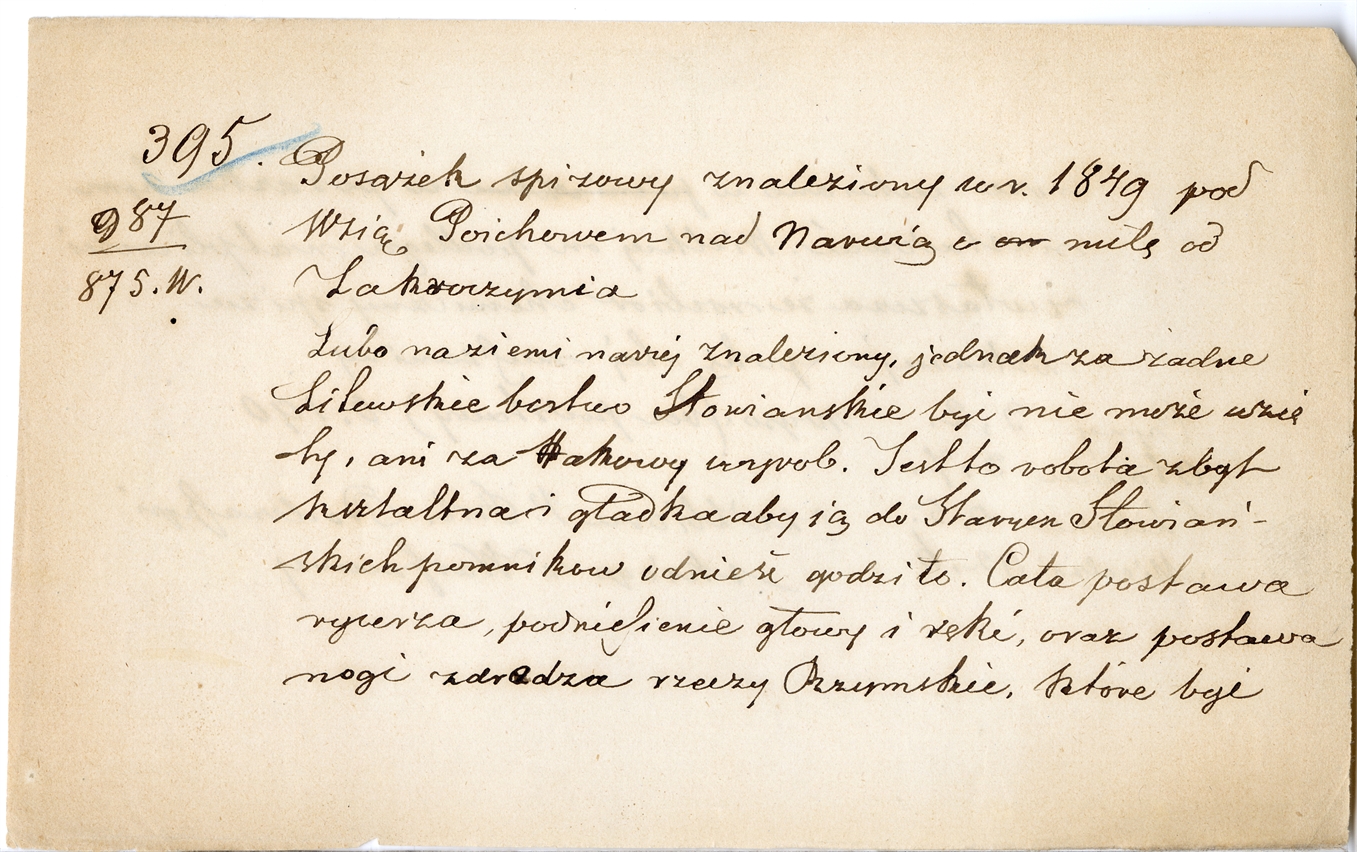 395.
987
875. W.
Posążek spiżowy znaleziony w r. 1849 pod
Wsią Poichowem nad Narwią o milę od
Zakroczymia
Lubo na ziemi naszej znaleziony, jednak za żadne
Litewskie bostwo Słowianskie być nie może wzię
ty, ani za takowy wyrob. Jest to robota zbyt
kształtna i gładka aby ją do Starych Słowiań-
skich pomnikow odnieść godziło. Cała postawa
rycerza, podniesienie głowy i ręki, oraz postawa
nogi zdradza rzeczy Rzymskie, które być